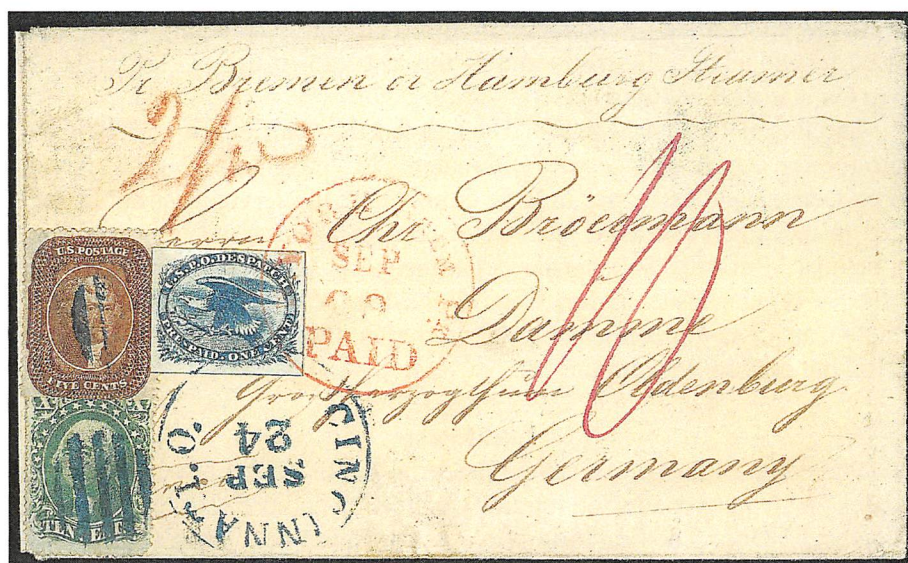 Pr Bremen or Hamburg Steamer
Herrn Chr Bröermann
Damme
Grossherzogthum Oldenburg
Germany
10
U.S. POSTAGE
FIVE CENTS
U.S.P.O. DESPATCH
PRE-PAID. ONE CENT.
TEN CENTS
SEP
PAID
CINCINNATI. O.
SEP
24